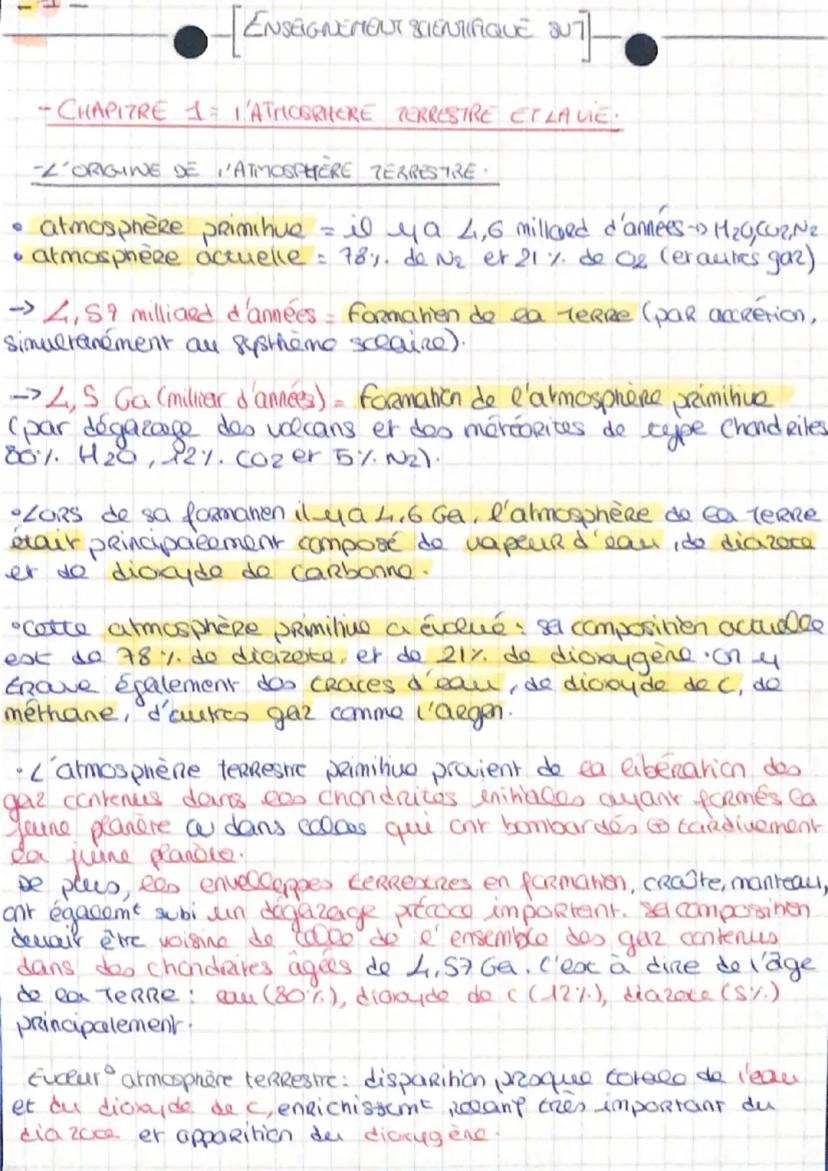 [ENSEIGNEMENT SCIENTIFIQUE SVT]
- CHAPITRE 1 = l'ATMOSPHERE TERRESTRE ET LA VIE.
- L'ORIGINE DE l'ATMOSPHÈRE TERRESTRE.
• atmosphère primitive = il y a 4,6 milliard d'années → H2O, CO2, N2
• atmosphère actuelle = 78% de N2 et 21% de O2 (et autres gaz)
→ 4,57 milliard d'années = formation de la terre (par accrétion,
simultanément au système solaire).
→ 4,5 Ga (milliar d'années) = formation de l'atmosphère primitive
(par dégazage des volcans et des météorites de type chondrites
80% H2O, 12% CO2 et 5% N2).
• Lors de sa formation il y a 4,6 Ga, l'atmosphère de la terre
était principalement composé de vapeur d'eau, de diazote
et de dioxyde de carbone.
• Cette atmosphère primitive a évolué : sa composition actuelle
est de 78% de diazote, et de 21% de dioxygène. On y
trouve également des traces d'eau, de dioxyde de C, de
méthane, d'autres gaz comme l'argon.
• L'atmosphère terrestre primitive provient de la libération des
gaz contenus dans les chondrites initiales ayant formés la
jeune planète ou dans celles qui ont bombardés tardivement
la jeune planète.
De plus, les enveloppes terrestres en formation, croûte, manteau,
ont égalemt subi un dégazage précoce important. Sa composition
devait être voisine de celle de l'ensemble des gaz contenus
dans des chondrites âgées de 4,57 Ga. C'est à dire de l'âge
de la Terre : eau (80%), dioxyde de C (12%), diazote (5%)
principalement.
atmosphère terrestre : disparition presque totale de l'eau
et du dioxyde de C, enrichissemt très important du
diazote et apparition du dioxygène.